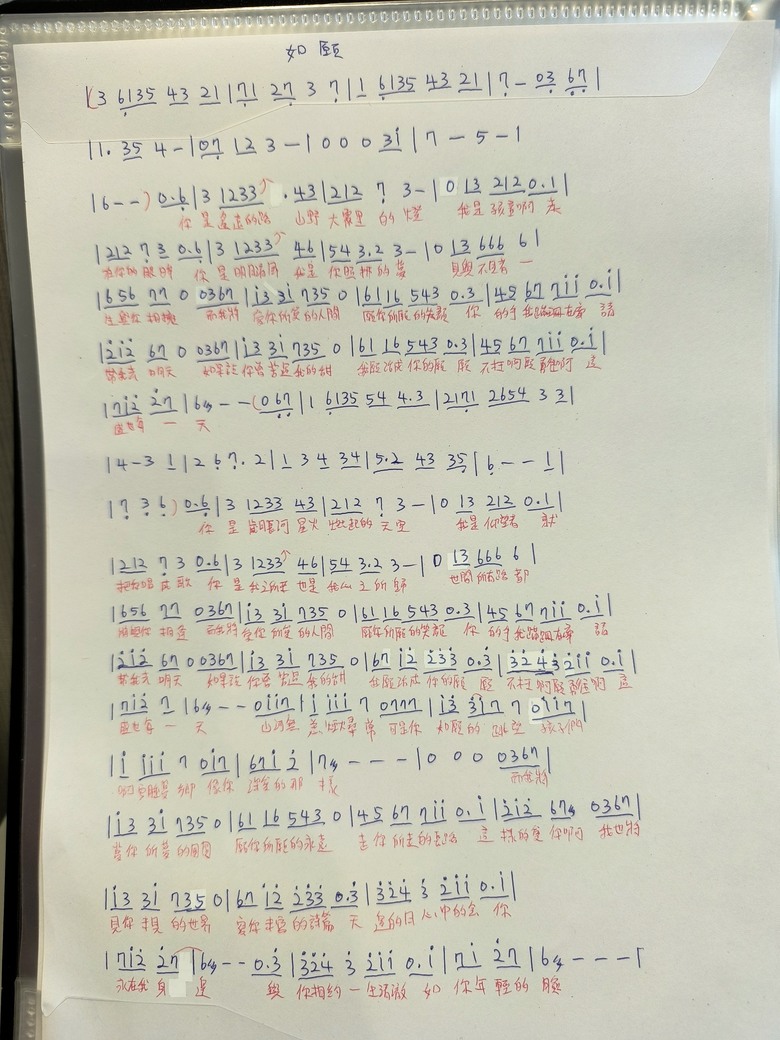 如願
(3 6135 43 21 | 71 27 3 7 | 1 6135 43 21 | 7 - 03 67 |
| 1. 35 4 - | 07 12 3 - | 0 0 0 31 | 7 - 5 - |
| 6 - - ) 0.6 | 3 1233 . 43 | 212 7 3 - | 0 13 212 0.1 |
你 是 遙遠的路 山野 大霧里 的 燈 我是 孩童啊 走
| 212 7 3 0.6 | 3 1233 46 | 54 3.2 3 - | 0 13 666 6 |
在你的 眼眸 你 是 明月清風 我是 你照拂的 夢 見與 不見者 一
| 656 77 0 0367 | 13 31 735 0 | 61 16 543 0.3 | 45 67 711 0.1 |
生與你 相擁 而我將 愛你所愛的人間 願你所願的笑顏 你 的手 我蹣跚在牽 請
| 212 67 0 0367 | 13 31 735 0 | 61 16 543 0.3 | 45 67 711 0.1 |
帶我去 明天 如果說 你曾苦過我的甜 我願活成你的願 願 不枉啊願勇往啊 這
| 712 27 | 6 - - (0 67 | 1 6135 54 4.3 | 2171 2654 3 3 |
盛世每 一 天
| 4 - 3 1 | 2 6 7. 2 | 1 3 4 34 | 5.2 43 35 | 6 - - 1 |
| 7 3 6 ) 0.6 | 3 1233 43 | 212 7 3 - | 0 13 212 0.1 |
你 是 歲月長河 星火 燃起的 天空 我是 仰望者 就
| 212 7 3 0.6 | 3 1233 46 | 54 3.2 3 - | 0 13 666 6 |
把你唱 成 歌 你 是 我之所來 也是 我心 之所 歸 世間 所有路 都
| 656 77 0367 | 13 31 735 0 | 61 16 543 0.3 | 45 67 711 0.1 |
將與你 相逢 而我將 愛你 所愛 的人間 願你所願的笑顏 你 的手 我蹣跚在牽 請
| 212 67 0 0367 | 13 31 735 0 | 67 12 233 0.3 | 3243 211 0.1 |
帶我去 明天 如果說 你曾 苦過 我的甜 我願活成 你的願 願 不枉啊願勇往啊 這
| 712 7 | 6 - - 0117 | 1 111 7 0777 | 13 317 7 0117 |
盛世每 一 天 山河無 恙 煙火尋 常 可是你 如願的 眺望 孩子們
| 1 111 7 017 | 671 2 | 7 - - - | 0 0 0 0367 |
啊安睡夢 鄉 像你 深愛的那 樣 而我將
| 13 31 735 0 | 61 16 543 0 | 45 67 711 0.1 | 212 67 0367 |
夢你 所夢 的團圓 願你所願的永遠 走你 所走的長路 這 樣的愛 你啊 我也將
| 13 31 735 0 | 67 12 233 0.3 | 324 3 211 0.1 |
見你 未見 的世界 寫你 未寫 的詩篇 天 邊的月 心中的念 你
| 712 27 | 6 - - 0.3 | 324 3 211 0.1 | 71 27 | 6 - - - |
永在我 身 邊 與 你相約 一 生清澈 如 你年 輕的 臉